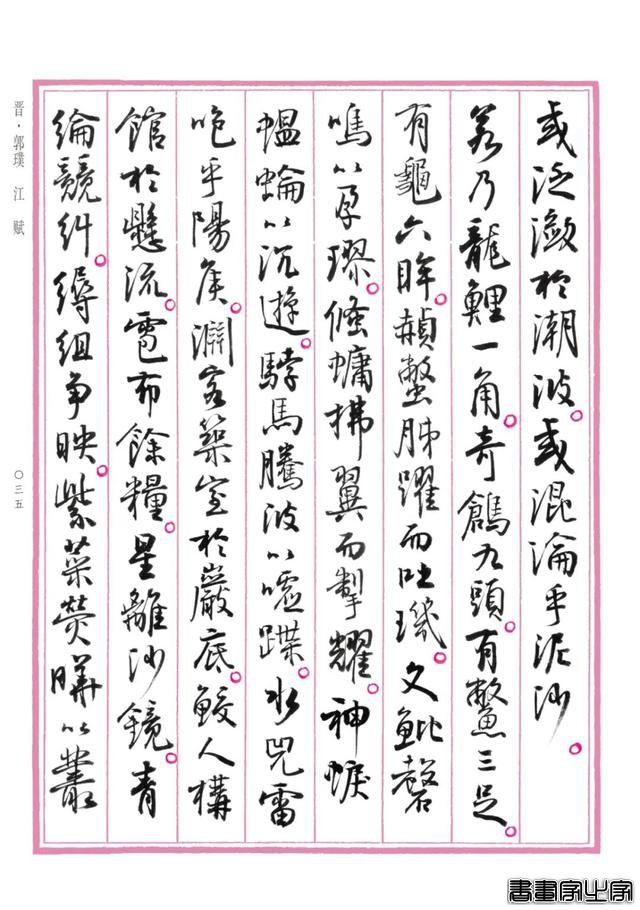 或泛瀲於潮波。或混淪乎泥沙。
若乃龍鯉一角。奇鶬九頭。有鱉三足。
有龜六眸。赬蟞胏躍而吐璣。文魮磬
鳴以孕璆。鯈䗤拂翼而掣耀。神蜧
蝹蜦以沉遊。䮀馬騰波以噓蹀。水兕雷
咆乎陽侯。淵客築室於巖底。鮫人構
館於懸流。雹布餘糧。星離沙鏡。青
綸競糾。縟組争映。紫菜熒曄以叢
晋·郭璞 江賦
〇三五